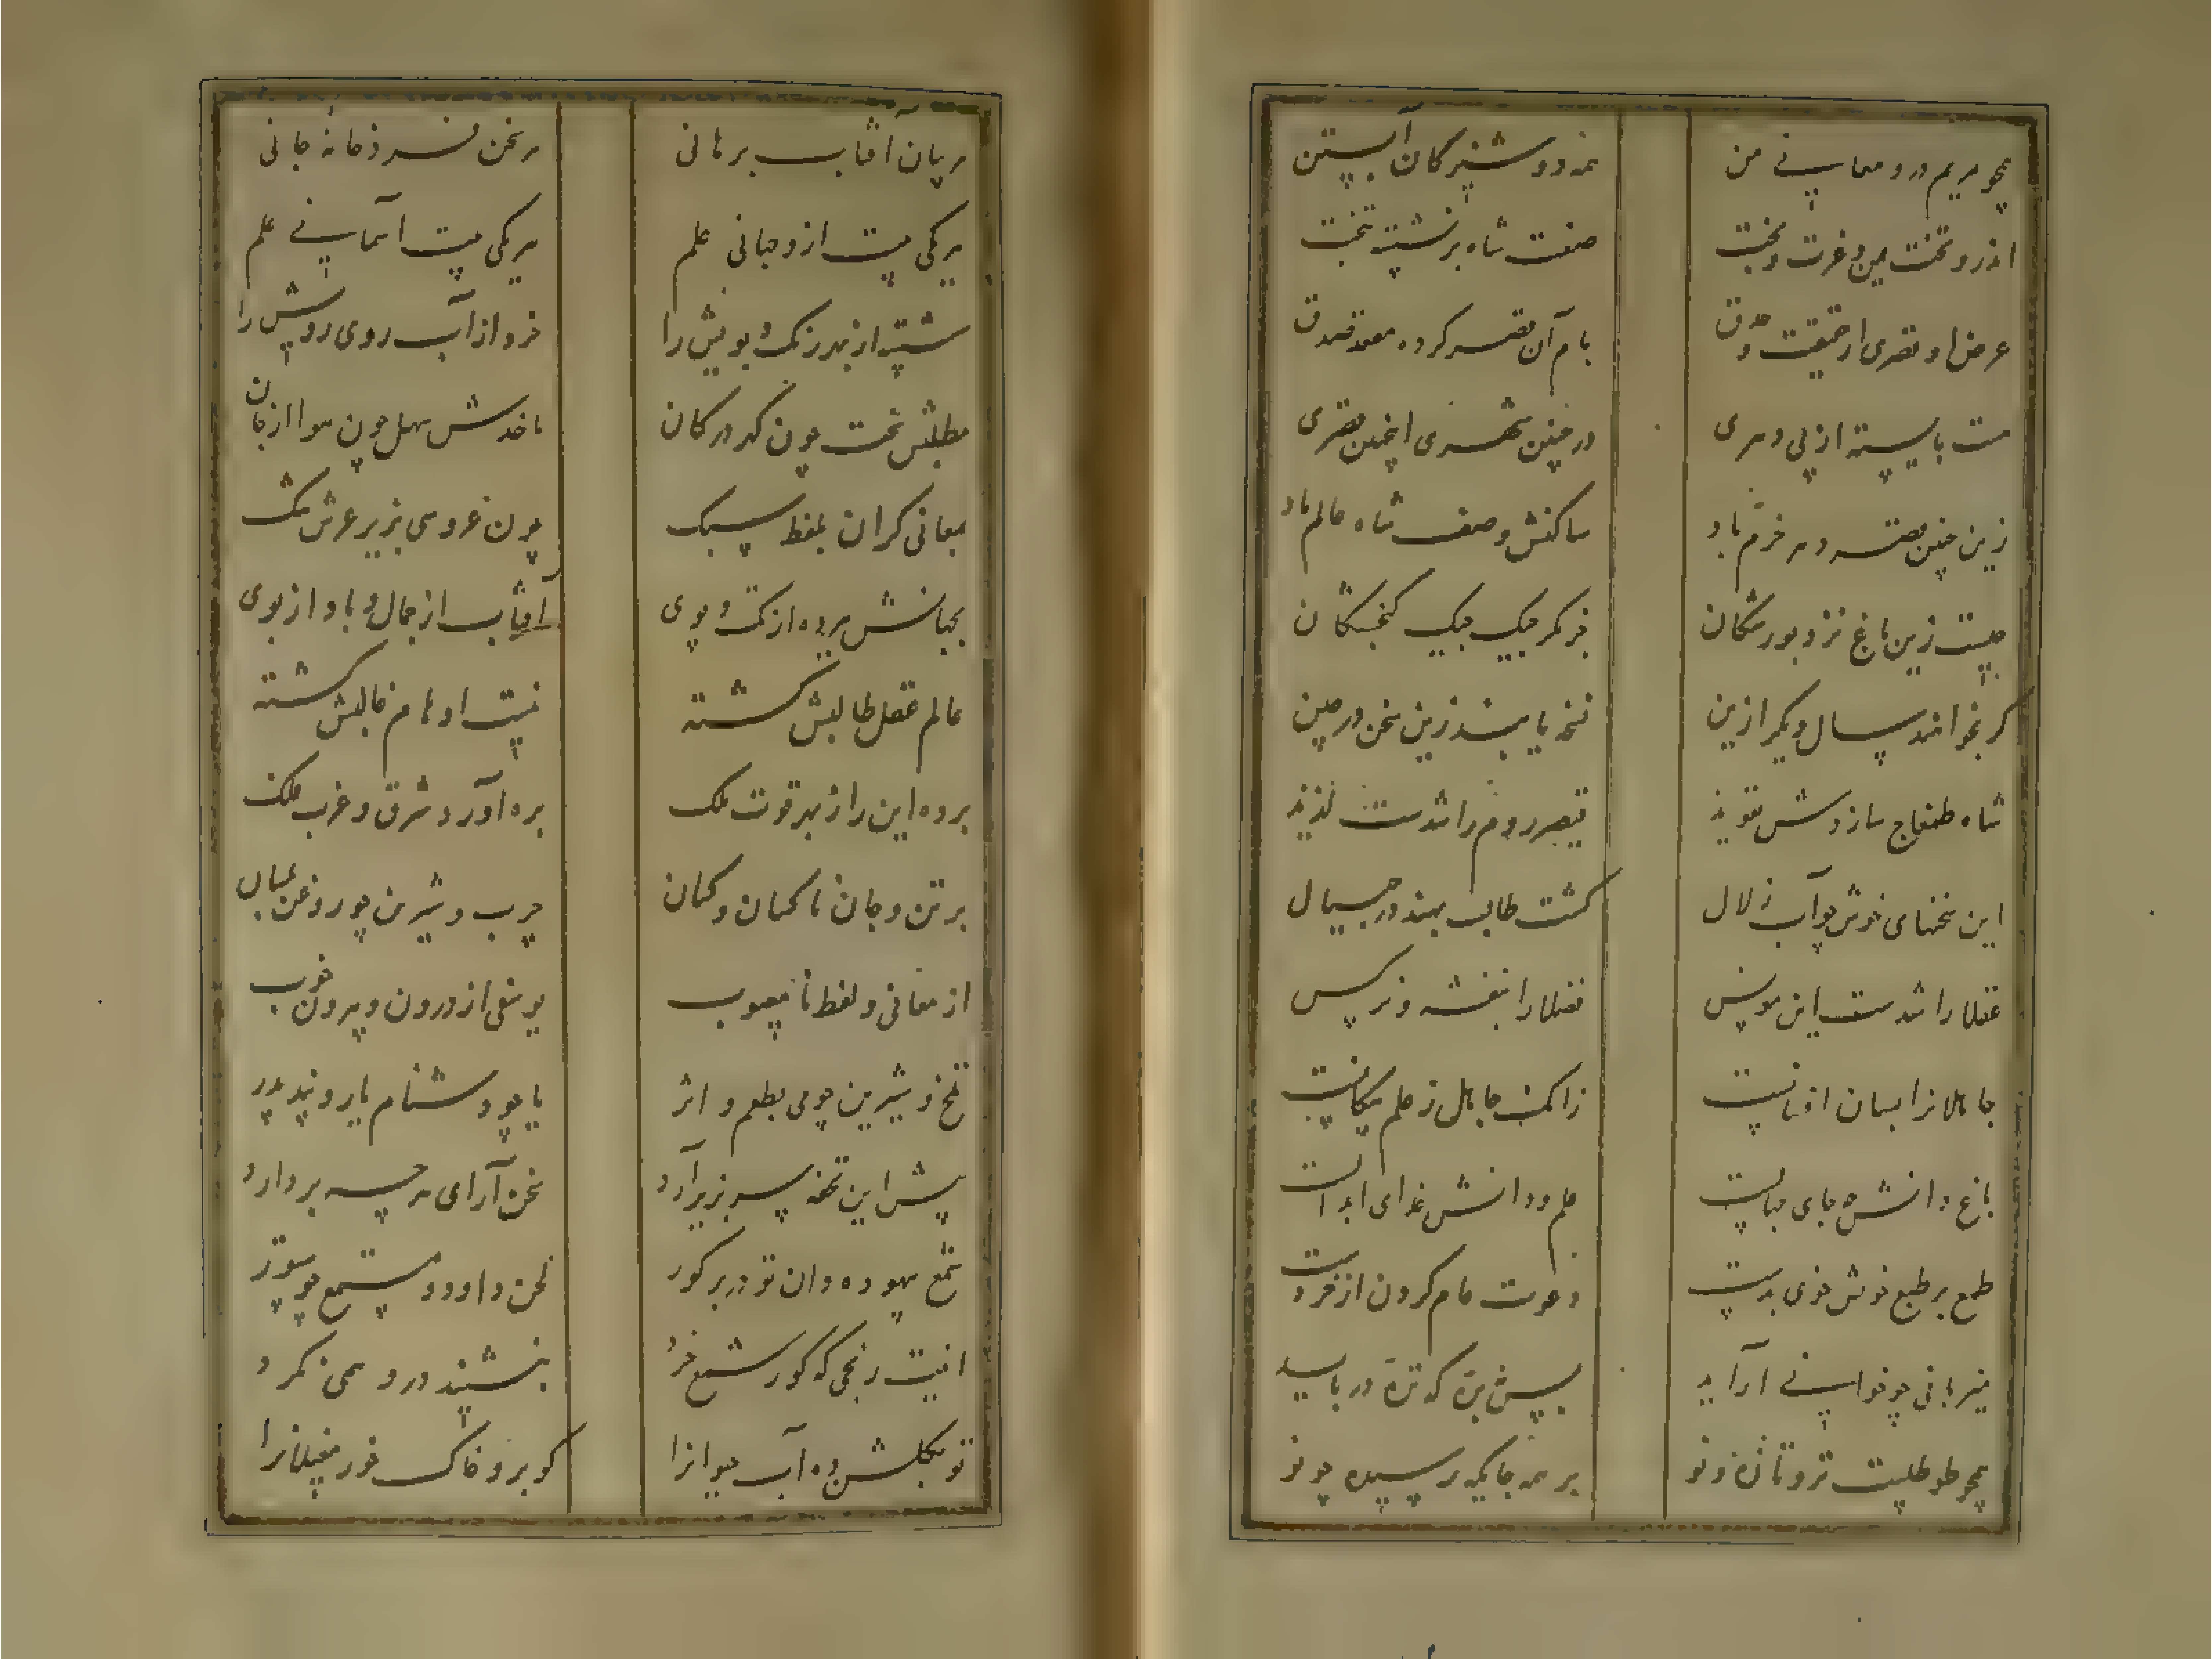 همچو مریم درو معانی من همه دوشیزگان آبستن
اندرو تخت یمن و عزت و بخت صفت شاه برنشسته تخت
عرض او قصری از حقیقت و حق بام آن قصر کرده معقد صدق
هست بایسته از پی دهری در چنین شهری اینچنین قصری
زین چنین قصر دهر خرم باد ساکنش وصف شاه عالم باد
چیست زین باغ نزد بورمکان جز مگر جیک جیک گنجشکان
گر بخوانند سال دیگر ازین نسخه یابند زین سخن در چین
شاه طمغاج سازدش تعویذ قیصر روم را شدست لذیذ
این سخنهای خوش چو آب زلال گشت طالب بهند در جیپال
عقلا را شدست این مونس فضلا را بنفشه و نرگس
جاهلانرا بسان افسانست زانک جاهل ز علم بیگانست
باغ دانش جای حیاتست علم و دانش غذای ابدانست
طمع بر طبع خوش خوی بدست دعوت عام کردن از خردست
میزبانی چو خوانی آراید پیش بره که تره درباید
همچو طوطیست تر و تازه و نو بر همه جایگه رسیده چو نو
هر بیان آفتاب برهانی هر سخن نسر ذخانه جانی
هر یکی بیت از و جهانی علم هر یکی بیت آسمانی علم
شسته از بهر رنگ و بویش را خرد از آب روی رویش را
مطلبش سخت چون گهر در کان ماخذش سهل چون هوا از جان
بمعانی گران بلفظ سبک چون عروسی بزیر عرش تنک
بجهانش برده از تک و پوی آفتاب از جمال و باد از بوی
عالم عقل طالبش گشته نیست اوهام غالبش گشته
برده این را ز بهر قوت ملک ره آورد شرق و غرب ملک
بر تن و جان ناکسان و کسان چرب و شیرین چو روغن عسان
از معانی و لفظ نامعیوب یوسفی از درون و بیرون خوب
تلخ و شیرین چو می بطعم و اثر یا چو دشنام یار و پند پدر
پیش این تحفه سر بزیر آرد سخن آرای هرچه بردارد
شمع بیهوده دان تو در بر کور لحن داود و مستمع چو ستور
اینت رنجی که کور شمع خرد بنشیند درو همی نگرد
تو بگلشن ده آب حیوانرا گو برو خاک خور مغیلانرا